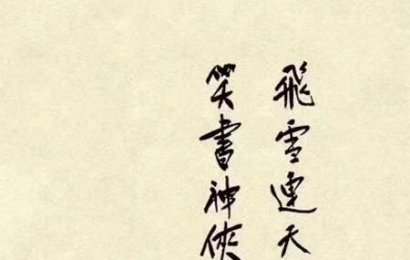 飛雪連天
笑書神俠